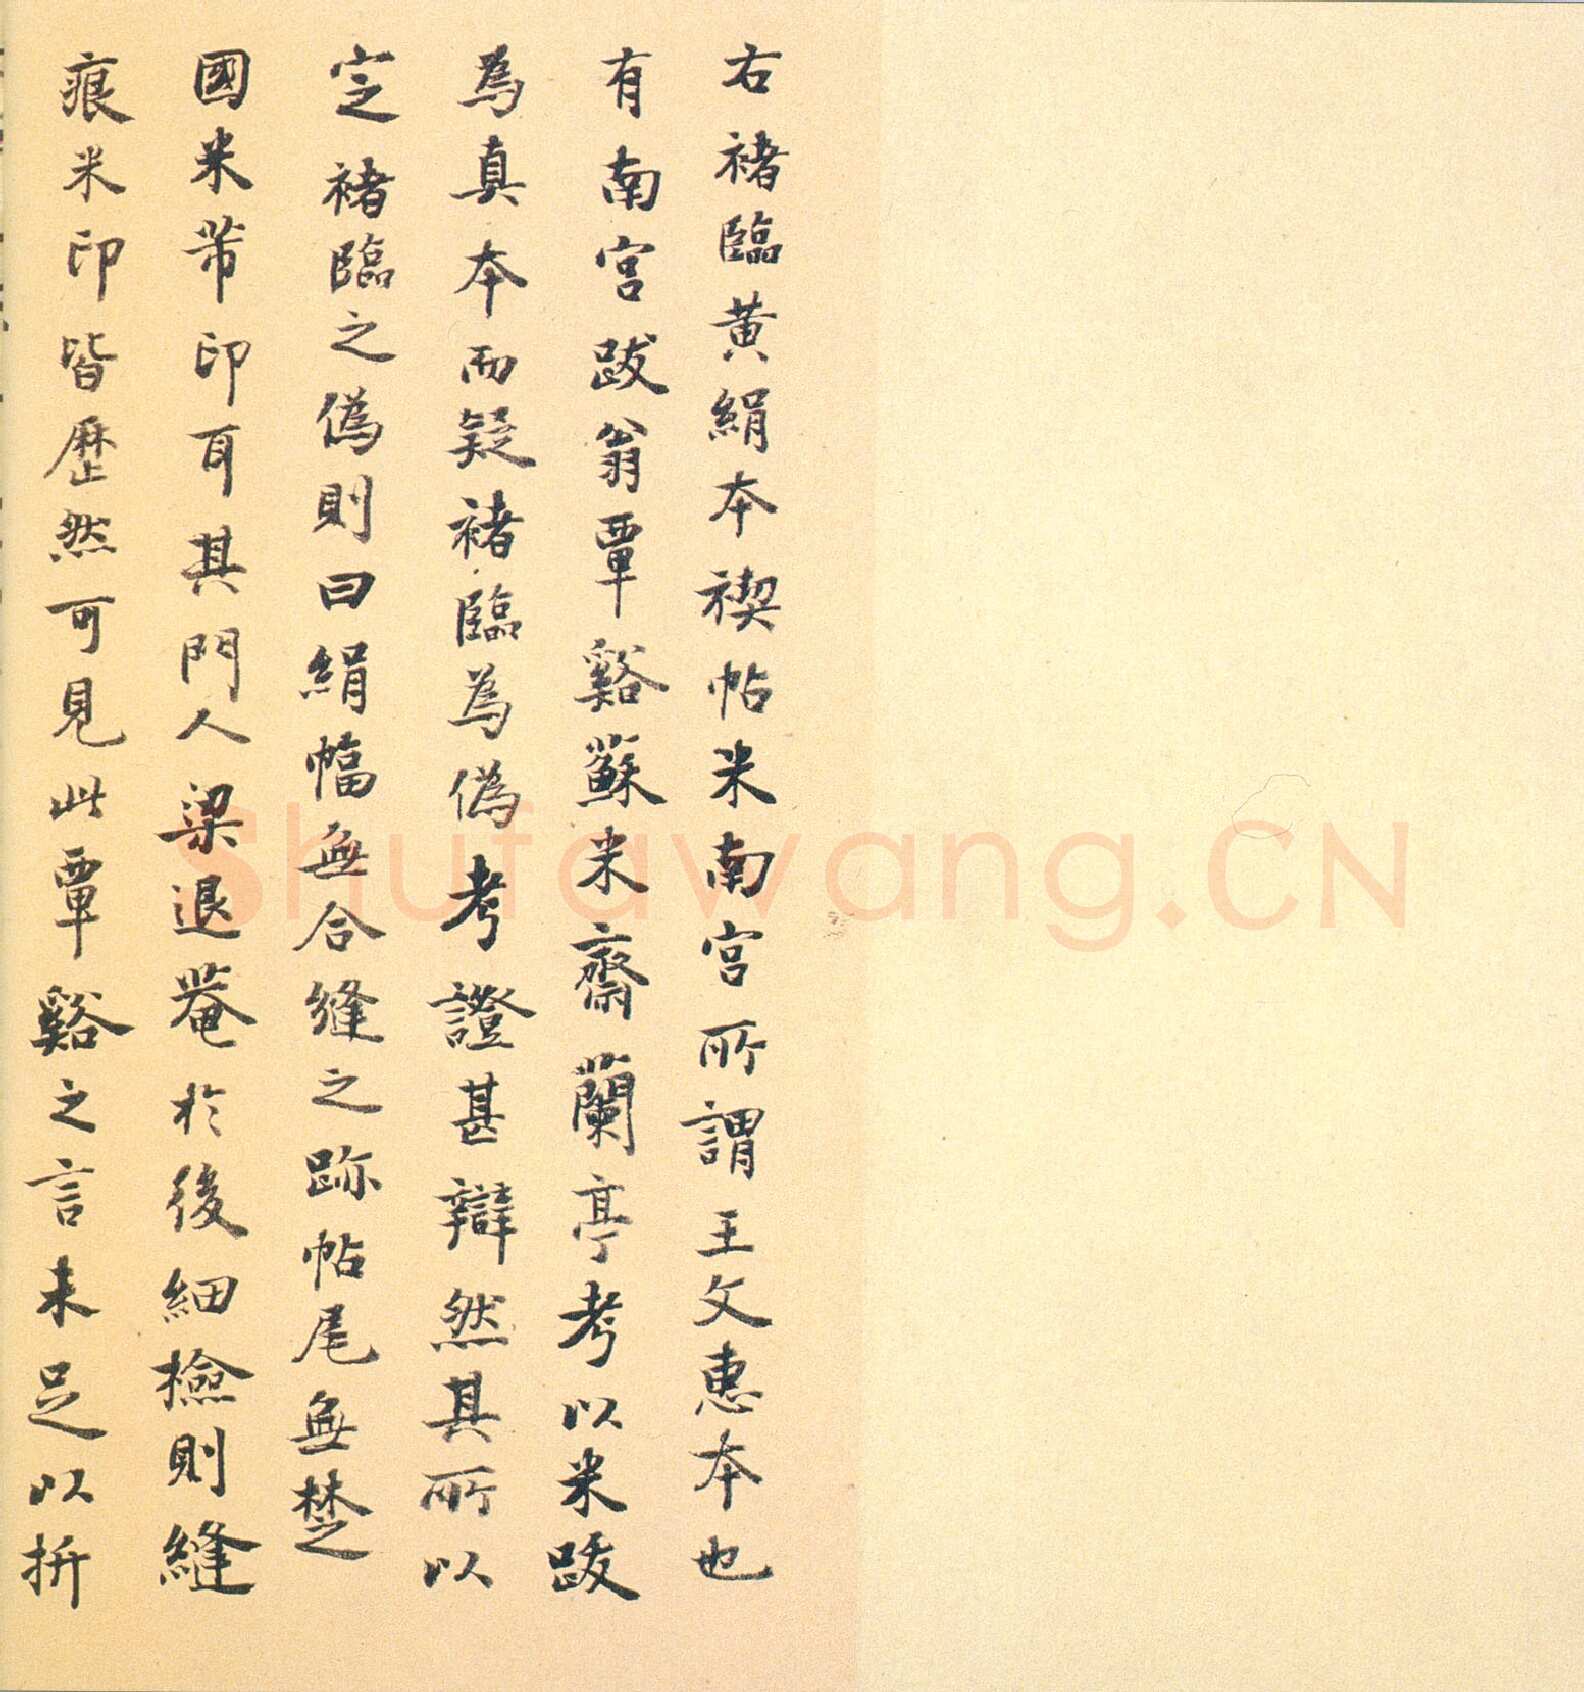 右褚臨黄絹本禊帖米南宮所謂王文惠本也
有南宮跋翁覃谿蘇米齋蘭亭考以米跋
為真本而疑褚臨為偽考證甚辯然其所以
定褚臨之偽則曰絹幅無合縫之跡帖尾無楚
國米芾印耳其門人梁退菴於後細檢則縫
痕米印皆歷然可見此覃谿之言未足以折
Shufawang.CN